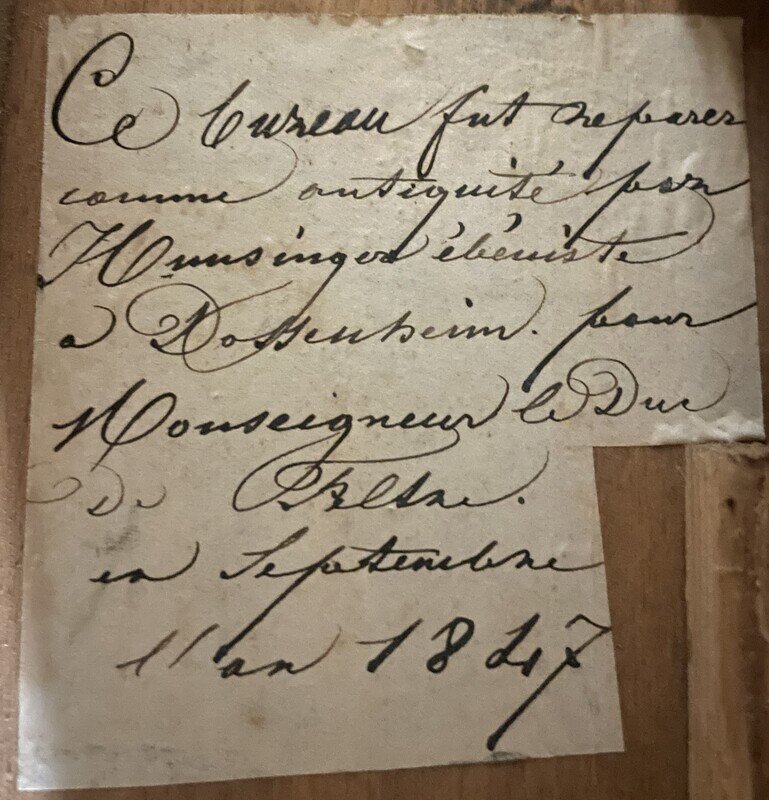 Ce bureau fut reparer
comme antiquité par
Hunsinger ébéniste
a Dossenheim. pour
Monseigneur le Duc
De
en Septembre
l'an 1847